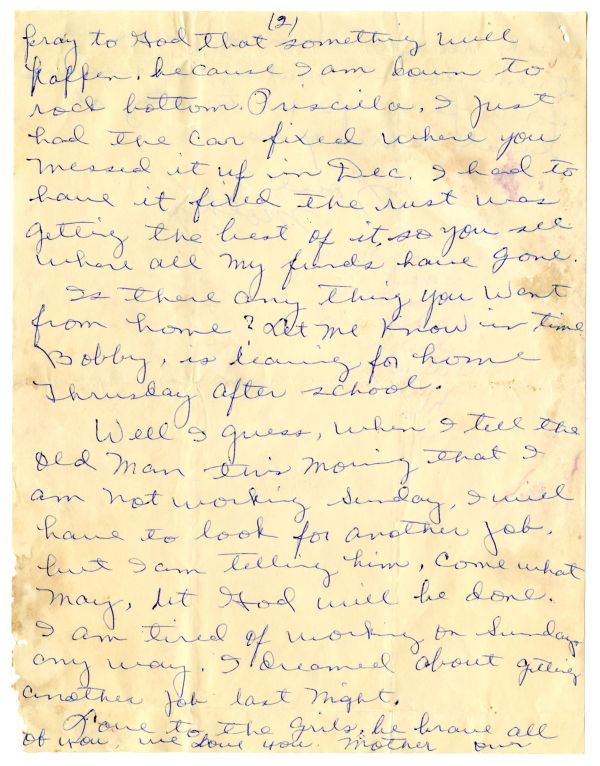 (2)
pray to God that something will
happen. because I am down to
rock bottom. Priscilla, I just
had the car fixed where you
messed it up in Dec. I had to
have it fixed the rust was
getting the best of it, so you see
where all my funds have gone.
Is there any thing you want
from home? Let me know in time
Bobby, is leaving for home
Thrusday after school.
Well I guess, when I tell the
Old Man this moning that I
am not working Sunday, I will
have to look for another job.
but I am telling him, come what
may, let God will be done.
I am tired of working on Sunday
any way. I dreamed about getting
another job last night.
Love to the girls, be brave all
of you, we love you. Mother